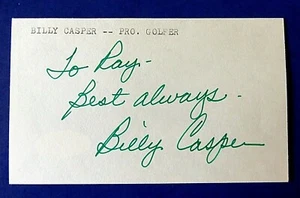 BILLY CASPER -- PRO. GOLFER
To Ray-
Best always-
Billy Casper